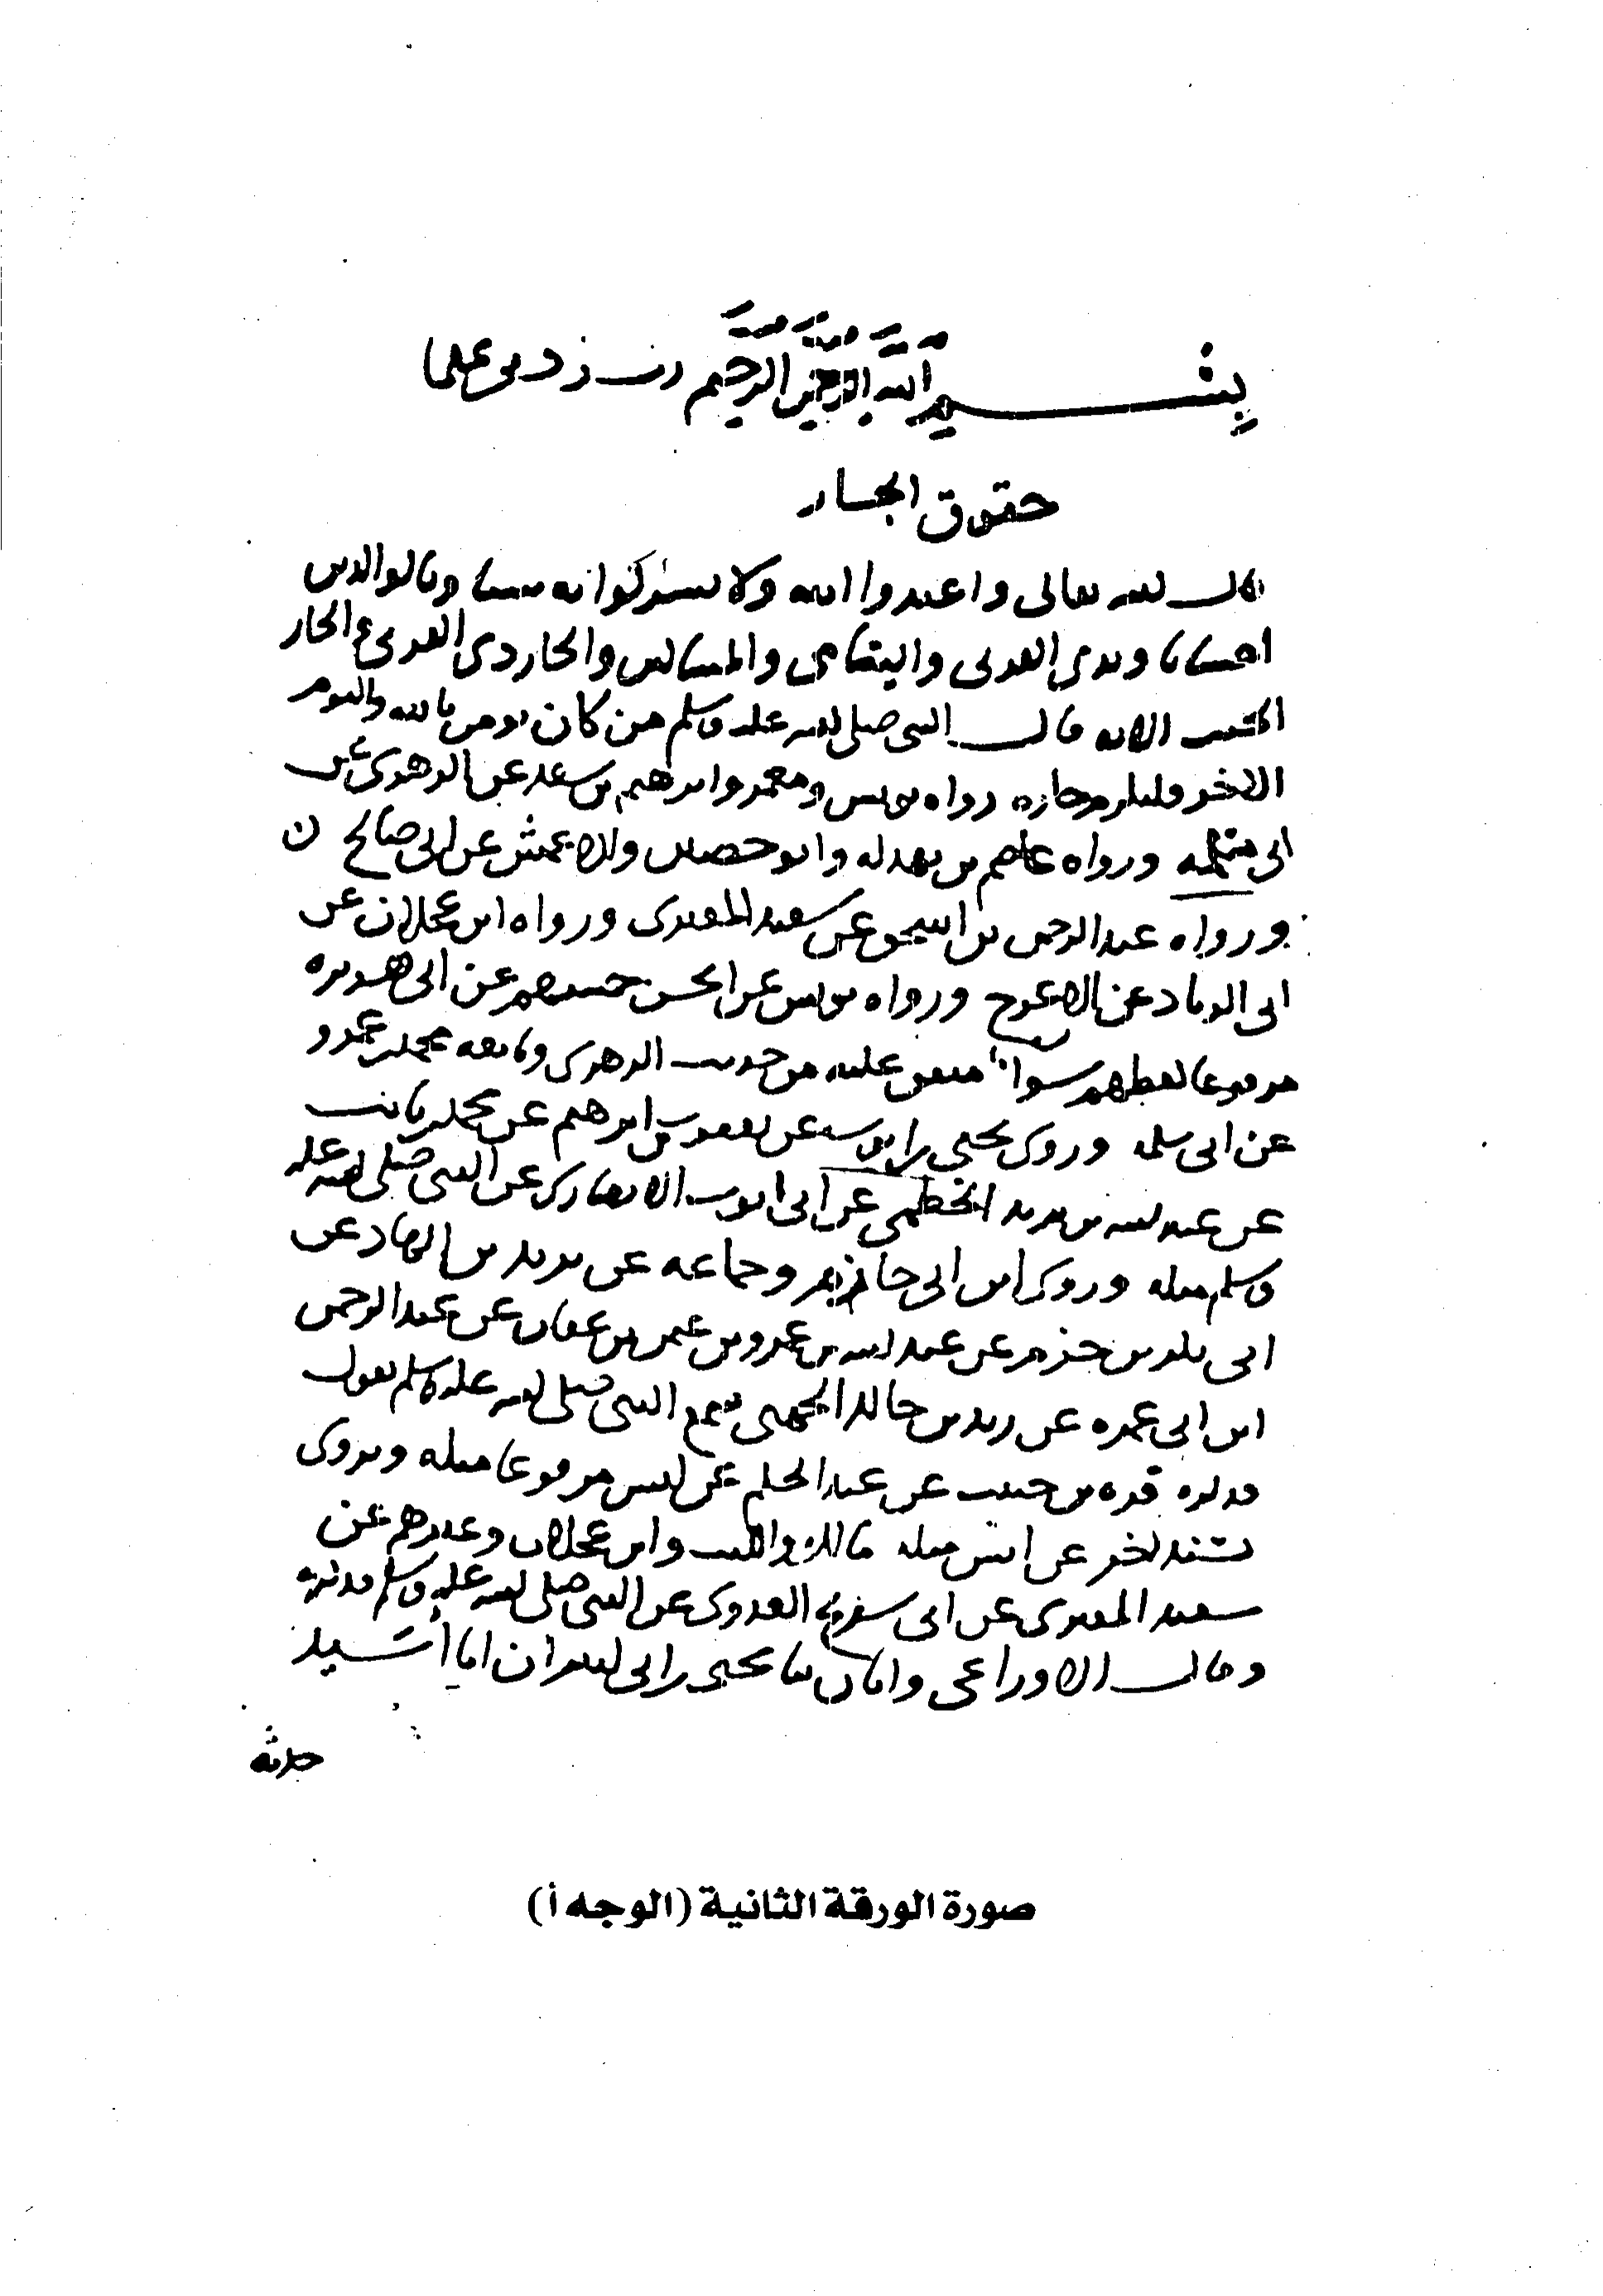 بسم الله الرحمن الرحيم رب زدني علما
حقوق الجار
قال الله تعالى واعبدوا الله ولا تشركوا به شيئا وبالوالدين
احسانا وبذي القربى واليتامى والمساكين والجار ذي القربى والجار
الجنب الاية قال النبي صلى الله عليه وسلم من كان يومن بالله واليوم
الاخر فليكرم جاره رواه يونس ومعمر وابرهيم بن سعد عن الزهري عن
ابي سلمه ورواه عاصم بن بهدله وابو حصين والاعمش عن ابي صالح ن
ورواه عبد الرحمن بن اسحق عن سعيد المقبري ورواه ابن عجلان عن
ابي الزناد عن الاعرج ورواه يونس عن الحسن خمستهم عن ابي هريره
مرفوعا لفظهم سوا متفق عليه من حديث الزهري وتابعه محمد بن عمرو
عن ابي سلمه وروى يحيى بن ايوب عن يعقوب بن ابرهيم عن محمد بن ثابت
عن عبد الله بن يزيد الخطمي عن ابي ايوب الانصاري عن النبي صلى الله عليه
وسلم مثله وروى ابن ابي حازم وجماعه عن يزيد بن الهاد عن
ابي بكر بن حزم عن عبد الله بن عمرو بن عثمن بن عفان عن عبد الرحمن
ابن ابي عمره عن زيد بن خالد الجهني سمع النبي صلى الله عليه وسلم يقول
فذكره قره بن حبيب عن عبد الحكم عن انس مرفوعا مثله ويروى
بسند اخر عن انس مثله مالك والليث وابن عجلان وغيرهم عن
سعيد المقبري عن ابي شريح العدوي عن النبي صلى الله عليه وسلم فذكره
وقال الاوزاعي وابان ثنا يحيى بن ابي كثير ان ابا أسيد
حدثه
صورة الورقة الثانية (الوجه أ)